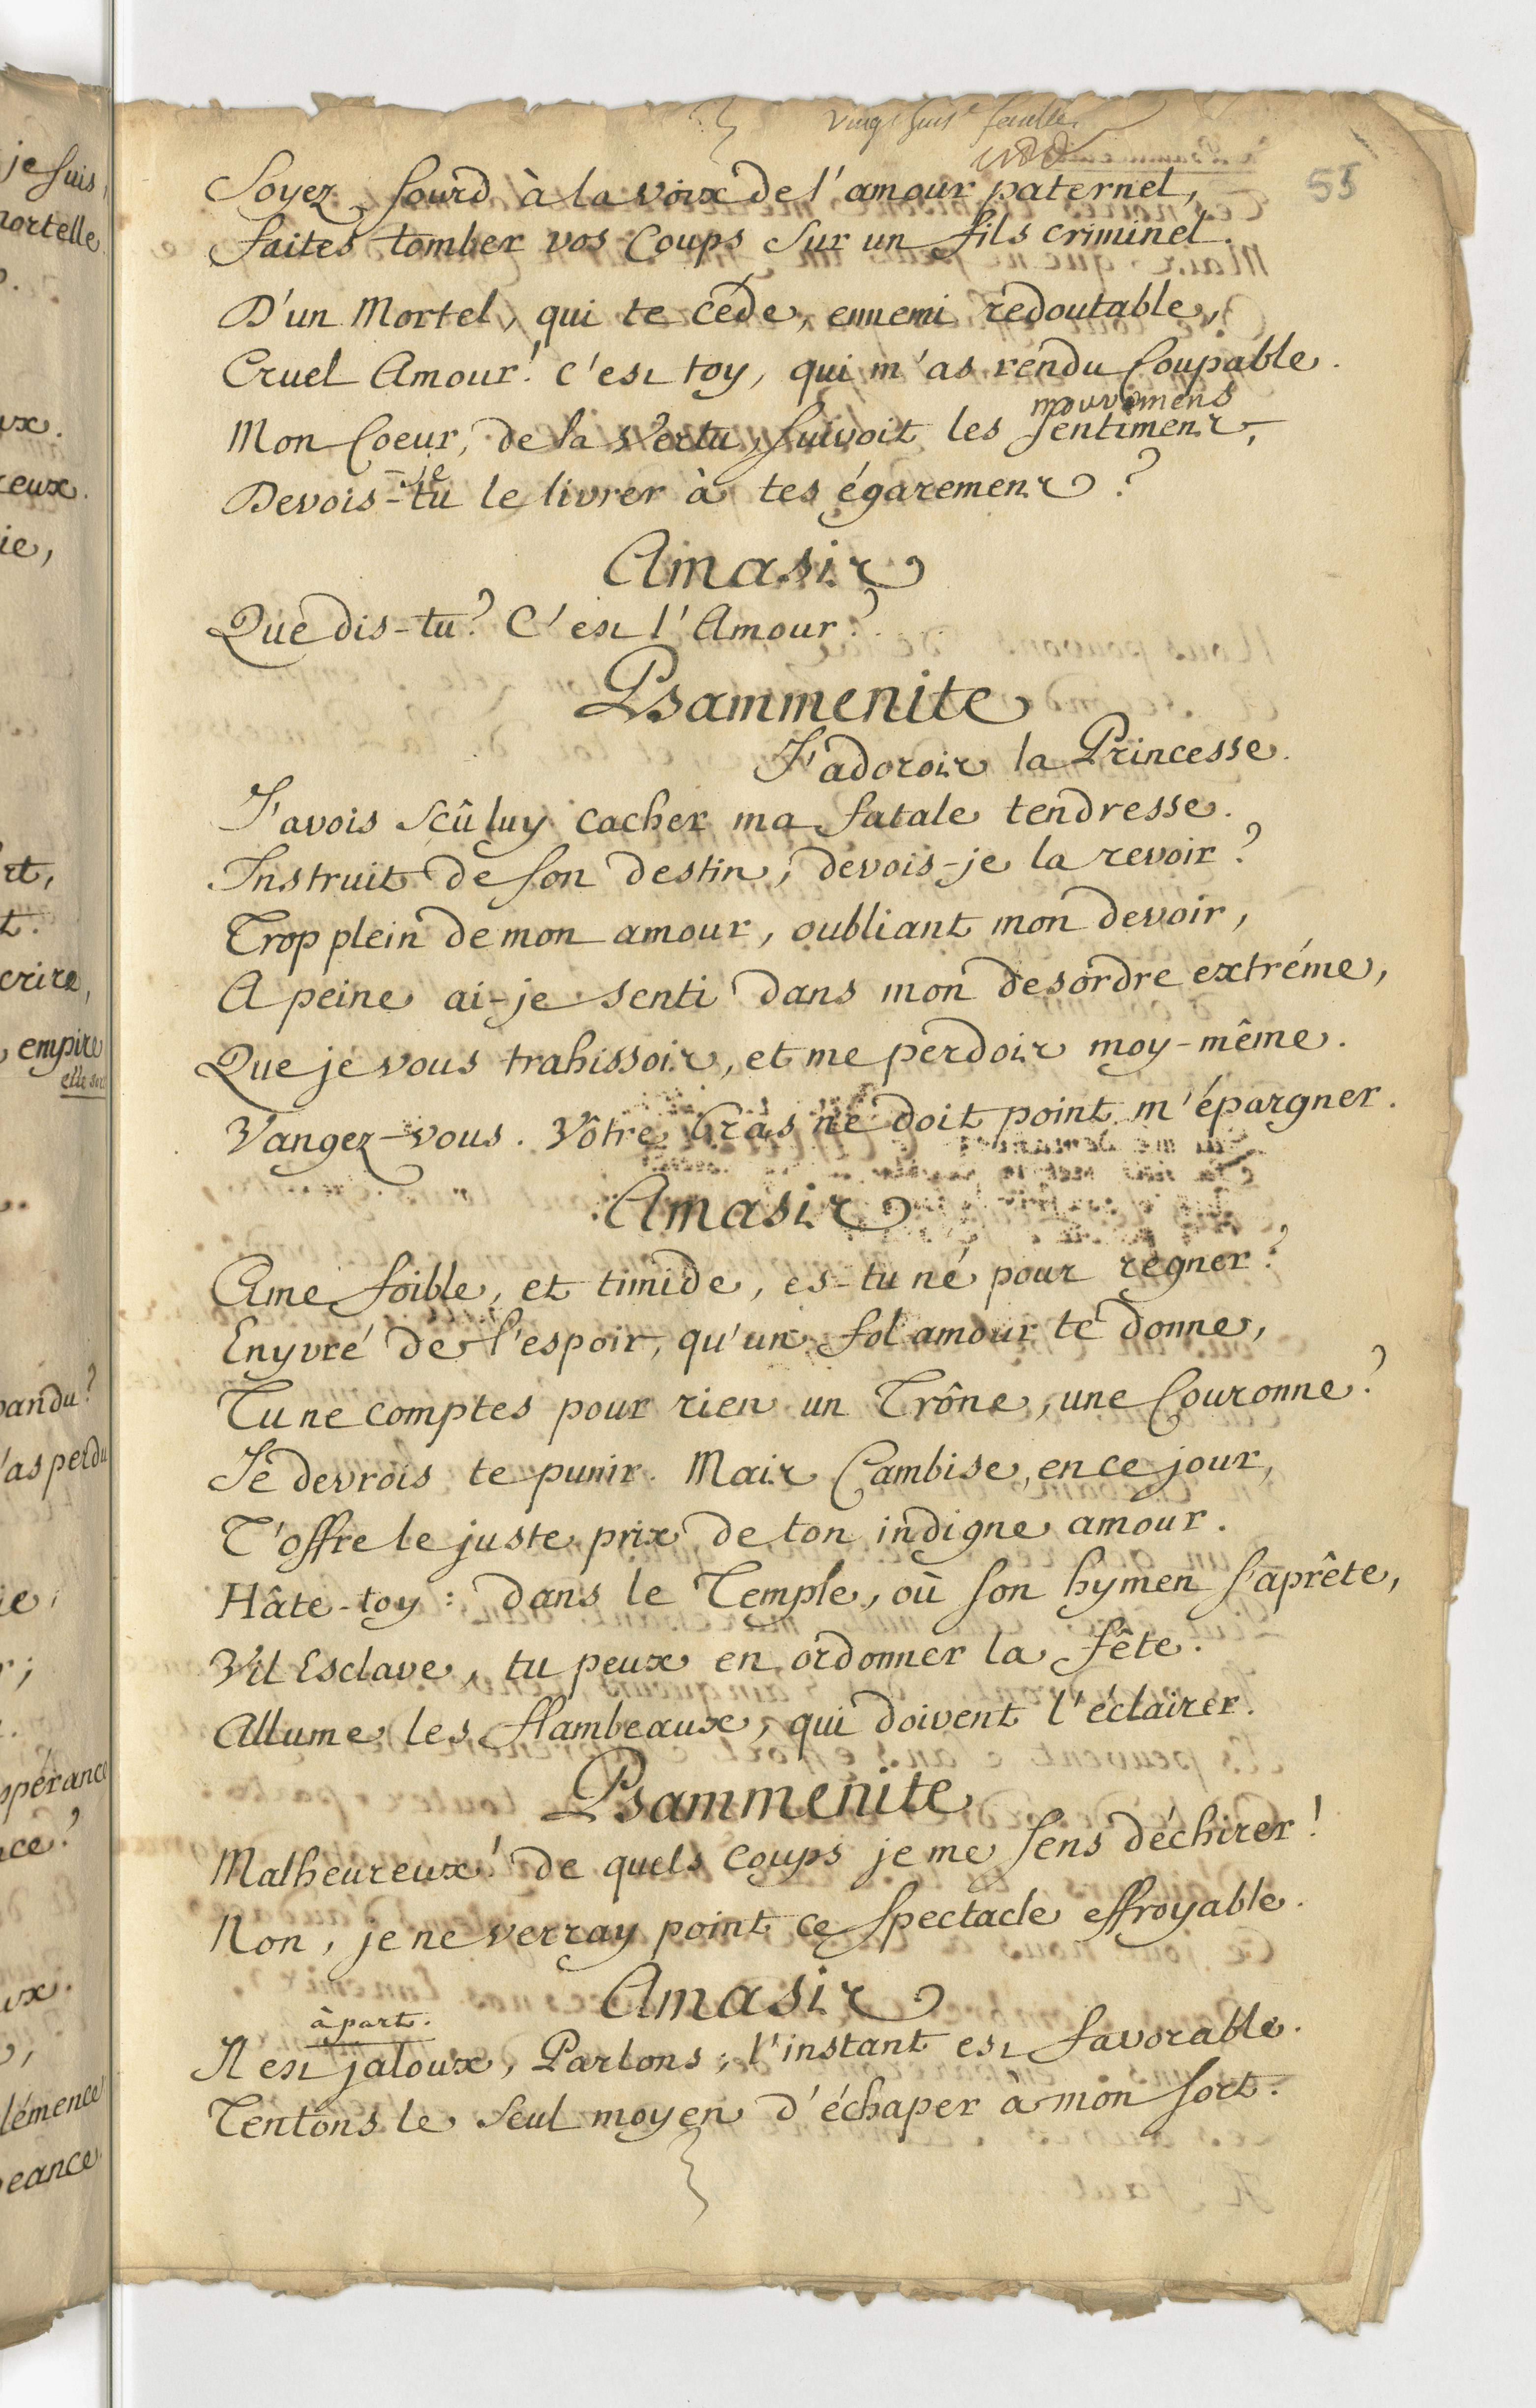 55
Soyez sourd à la voix de l'amour paternel,
faites tomber vos Coups sur un fils criminel.
D'un Mortel, qui te céde, ennemi redoutable,
Cruel Amour! c'est toy, qui m'as rendu Coupable.
mouvemens
Mon Coeur, de la Vertu, suivoit les sentimens,
-je
Devois-tu le livrer à tes égaremens?
Amasis
Que dis-tu? C'est l'Amour?
Psammenite
J'adorois la Princesse.
J'avois sçû luy cacher ma fatale tendresse.
Instruit de son destin, devois-je la revoir?
Trop plein de mon amour, oubliant mon devoir,
A peine ai-je senti dans mon desordre extréme,
Que je vous trahissois, et me perdois moy-même.
Vangez-vous. Vôtre bras ne doit point m'épargner.
Amasis
Ame foible, et timide, es-tu né pour regner?
Enyvré de l'espoir, qu'un fol amour te donne,
Tu ne comptes pour rien un Trône, une Couronne?
Je devrois te punir. Mais Cambise, en ce jour,
T'offre le juste prix de ton indigne amour.
Hâte-toy: dans le Temple, où son hymen s'aprête,
Vil Esclave, tu peux en ordonner la fête.
Allume les flambeaux, qui doivent l'éclairer.
Psammenite
Malheureux! de quels coups je me sens déchirer!
Non, je ne verray point ce spectacle effroyable.
Amasis
à part.
Il est jaloux, Parlons; l'instant est favorable.
Tentons le seul moyen d'échaper a mon sort.
je suis,
mortelle
crire,
empire
elle sort
pandu?
l'as perdu
spérance
lémence
geance